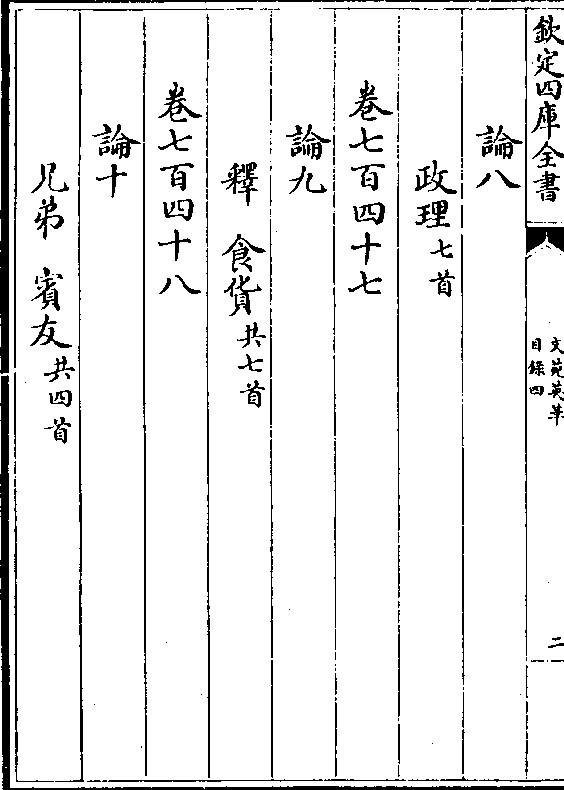 欽定四庫全書
文苑英華
目錄四
二
論八
政理七首
卷七百四十七
論九
釋 食貨共七首
卷七百四十八
論十
兄弟 賓友共四首